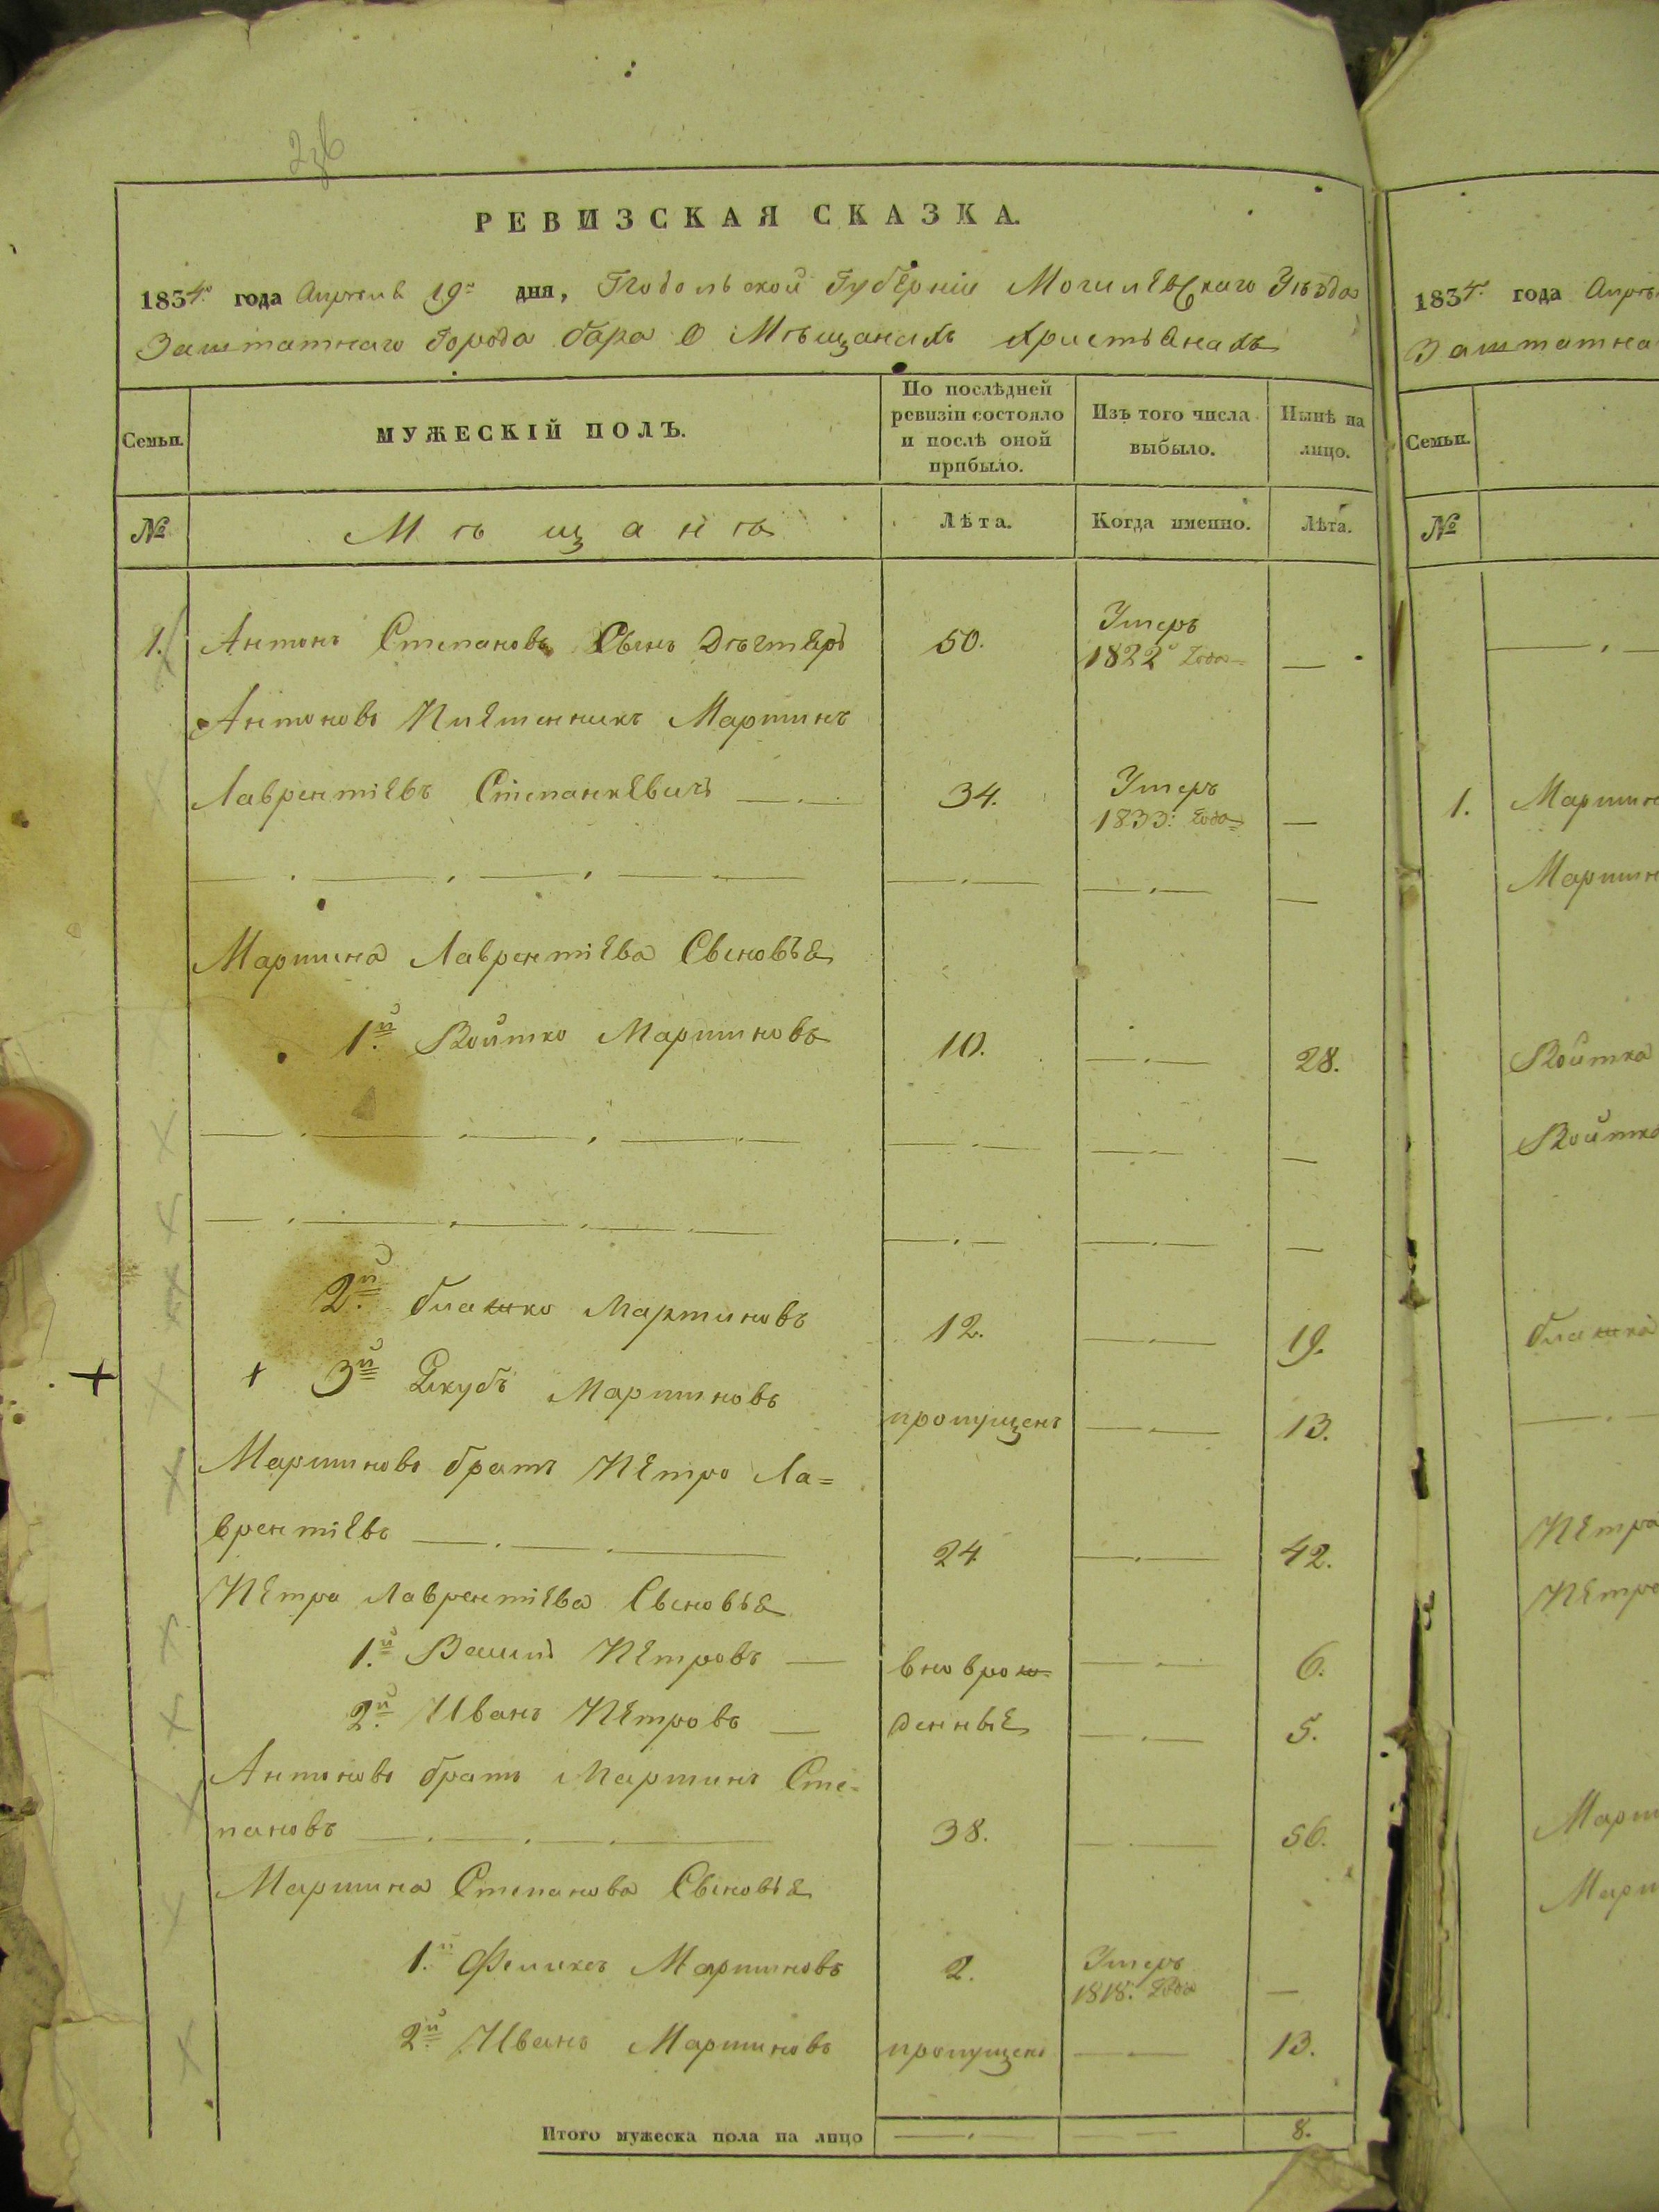 РЕВИЗСКАЯ СКАЗКА.
1834го года Апреля 19го дня, Подольской Губерніи Могилевскаго Уѣзда
Заштатнаго Города Бара О Мѣщанахъ Христіанахъ
Семьи.
МУЖЕСКІЙ ПОЛЪ.
По послѣдней ревизіи состояло и послѣ оной прибыло.
Изъ того числа выбыло.
Нынѣ на лицо.
№
Мѣщанѣ
Лѣта.
Когда именно.
Лѣта.
1. Антонъ Степановъ Сынъ 50. Умеръ 1822го Года —
Антоновъ Мартинъ
Лаврентіевъ Степанкевичъ 34. Умеръ 1833: Года —
Мартина Лаврентіева Сыновъя
1й Войтко Мартиновъ 10. 28.
2й Блашко Мартиновъ 12. 19.
+ 3й Якубъ Мартиновъ пропущенъ 13.
Мартиновъ братъ Петро Ла=
врентіевъ 24 42.
Петра Лаврентіева Сыновъя
1й Петровъ — вноврож- 6.
2й Иванъ Петровъ — денные 5.
Антоновъ братъ Мартинъ Сте-
пановъ 38. 56.
Мартина Степанова Сыновъя
1й Феликсъ Мартиновъ 2. Умеръ 1818: Года —
2й Иванъ Мартиновъ пропущенъ 13.
Итого мужеска пола на лицо 8.
1834. года
Заштатна
Семьи.
№
1. Мартин
Мартин
Войтка
Войтко
Блашка
Петра
Петро
Март
Март